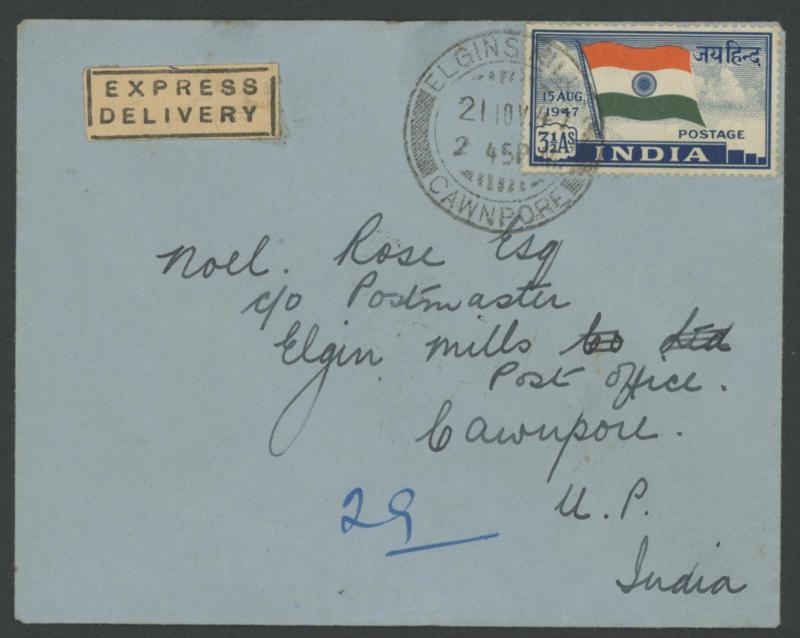 EXPRESS
DELIVERY
CAWNPORE
21 NOV 47
2 45P
जय हिन्द
15 AUG.
1947
3½As
POSTAGE
INDIA
Noel. Rose Esq
c/o Postmaster
Elgin Mills Co Ltd
Post Office.
Cawnpore.
U.P.
India
29